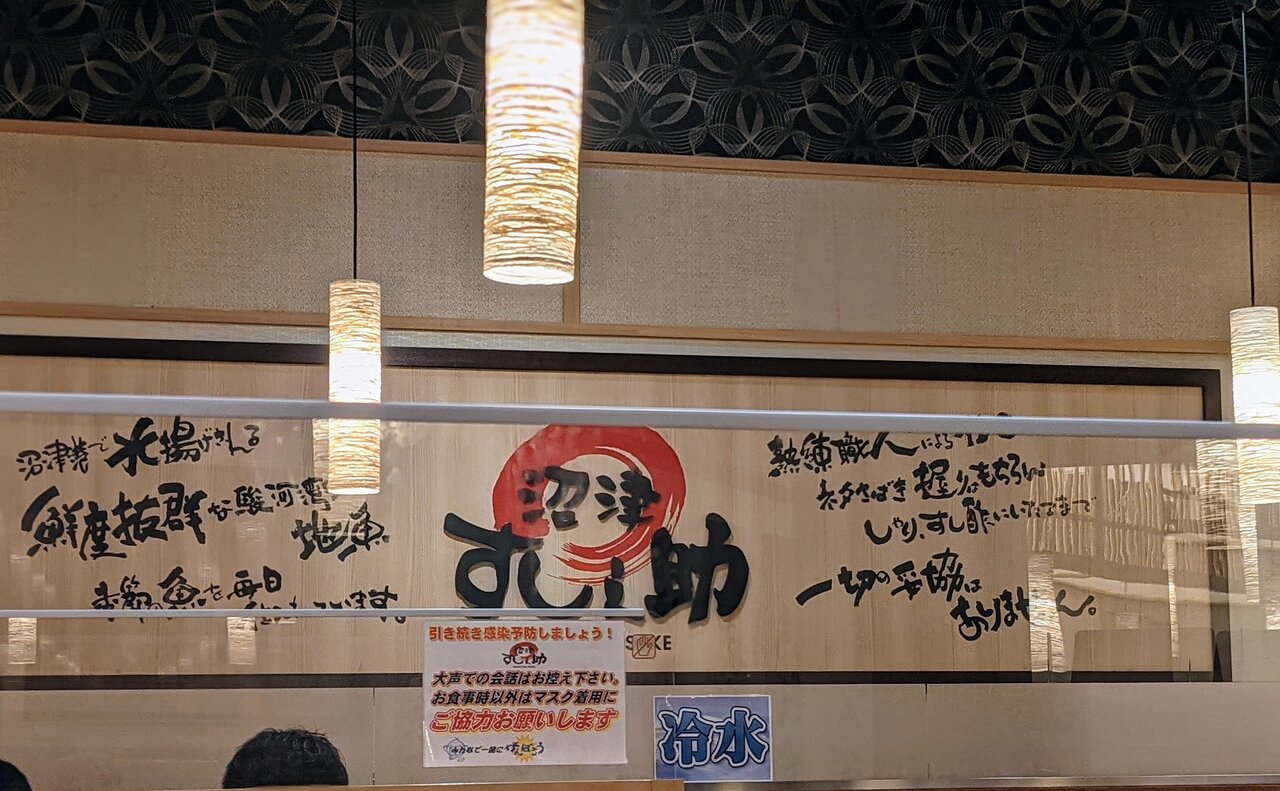 沼津港で水揚げされる
鮮度抜群な駿河湾
地魚
季節の魚を毎日
沼津
すし之助
熟練職人による
ネタさばき 握りはもちろん、
しゃり、すし酢にいたるまで
一切の妥協は
ありません。
引き続き感染予防しましょう！
沼津
すし之助
大声での会話はお控え下さい。
お食事時以外はマスク着用に
ご協力お願いします
みんなで一緒にがんばろう
冷水